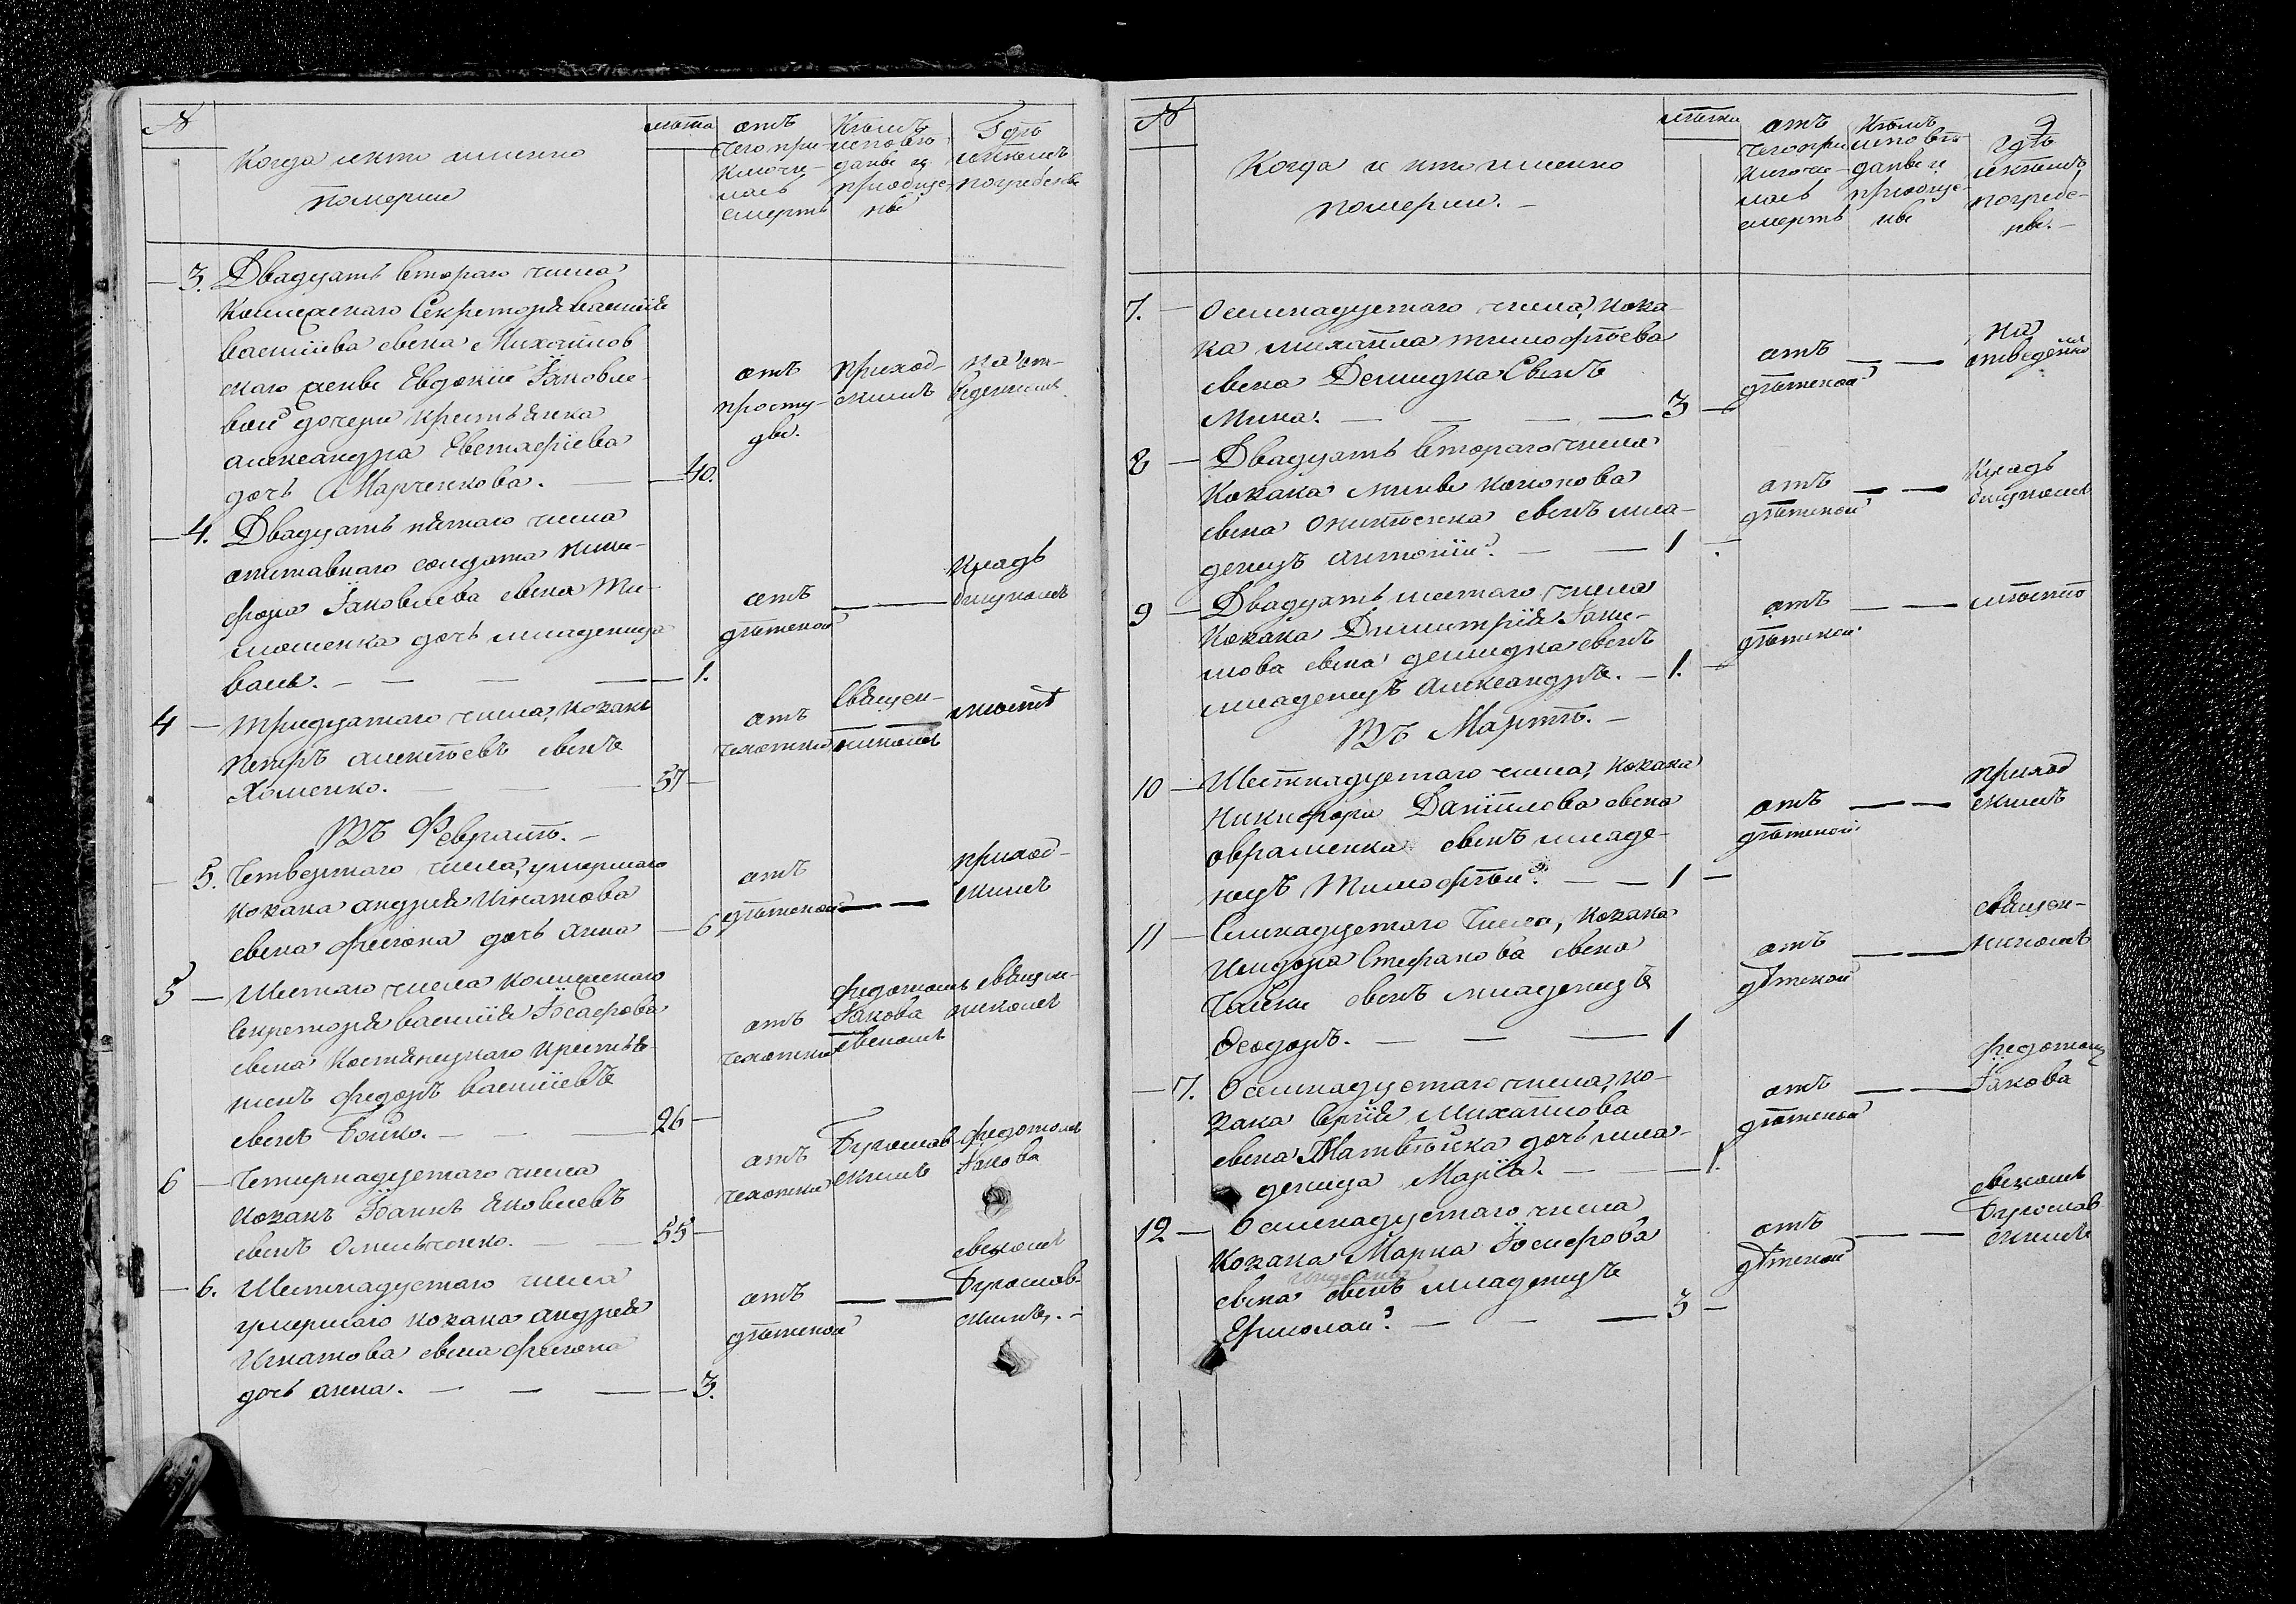 №
Когда и кто именно
померли
лѣта
отъ
чего при-
ключи-
лась
смерть
Кѣмъ
исповѣ-
даны и
приобще-
ны
Гдѣ
и кѣмъ
погребены
3. Двадцать втораго числа
Коллежскаго Секретаря Василія
Василіева сына Михайлов
скаго жены Евдокіи Іаковле-
вой дочери крестьянка
Александра Евстафіева
дочь Марченкова. — 40.
отъ
просту-
ды.
приход-
скимъ
на от-
веденномъ
4. Двадцать пятаго числа
отставнаго солдата Ники-
фора Іаковлева сына Ти-
мошенка дочь младеница
— 1.
отъ
дѣтской
— —
кладь
бищномъ
4 — Тридцатаго числа, козакъ
Петръ Алексѣевъ сынъ
Хоменко. — — 57 —
отъ
чахотки
Священ-
никомъ
мѣстѣ
Въ Февралѣ. —
5. Четвертаго числа, умершаго
козака Андрея Игнатова
сына дочь Анна — 6
отъ
дѣтской
— —
приход-
скимъ
5 — Шестаго числа Коллежскаго
Секретаря Василія Іосифова
сына Костянецкаго крестья-
нинъ Федоръ Василіевъ
сынъ Бойко. — — 26 —
отъ
чахотки
Федотомъ
Іакова
сыномъ
священ-
никомъ
6 — Четырнадцатаго числа
козакъ Іоаннъ Яковлевъ
сынъ Омельченко. — — 55 —
отъ
чахотки
скимъ
Федотомъ
Іакова
6. Шестнадцатаго числа
умершаго козака Андрея
Игнатова сына
дочь Анна. — — — 3.
отъ
дѣтской
— —
сыномъ
скимъ. —
№
Когда и кто именно
померли. —
лѣта
отъ
чего при
ключи-
лась
смерть
Кѣмъ
исповѣ-
даны и
приобще-
ны
9
Гдѣ
и кѣмъ
погребе-
ны. —
7. — Осмнадцатаго числа, коза-
ка Михаила Тимофѣева
сына Демидка Сынъ
Мина. — — — 3 —
отъ
дѣтской
— —
на
отведенномъ
8 — Двадцать втораго числа
козака сына сынъ мла-
денецъ Антоній. — — 1 —
отъ
дѣтской
— —
кладь
бищномъ
9 — Двадцать шестаго числа
козака Димитрія Іаки-
мова сына Демидка сынъ
младенецъ Александръ. — 1. —
отъ
дѣтской.
— —
мѣстѣ
Въ Мартѣ. —
10 — Шестнадцатаго числа, козака
Никифора Даніилова сына
Овраменка сынъ младе-
нецъ Тимофѣй. — — 1 —
отъ
дѣтской.
— —
приход
скимъ
11 — Семнадцатаго числа, козака
Исидора Стефанова сына
Чайки сынъ младенецъ
Феодоръ. — — — 1
отъ
дѣтской
— —
священ-
никомъ
7. Осмнадцатаго числа, ко-
зака Сергія Михаилова
сына Матвѣйка дочь мла-
деница Марія. — — 1.
отъ
дѣтской
— —
Федотомъ
Іакова
12 — Осмнадцатаго числа
козака Марка Іосифова
сына сынъ младенецъ
Ермолай. — — — 3 —
отъ
дѣтской
— —
сыномъ
скимъ